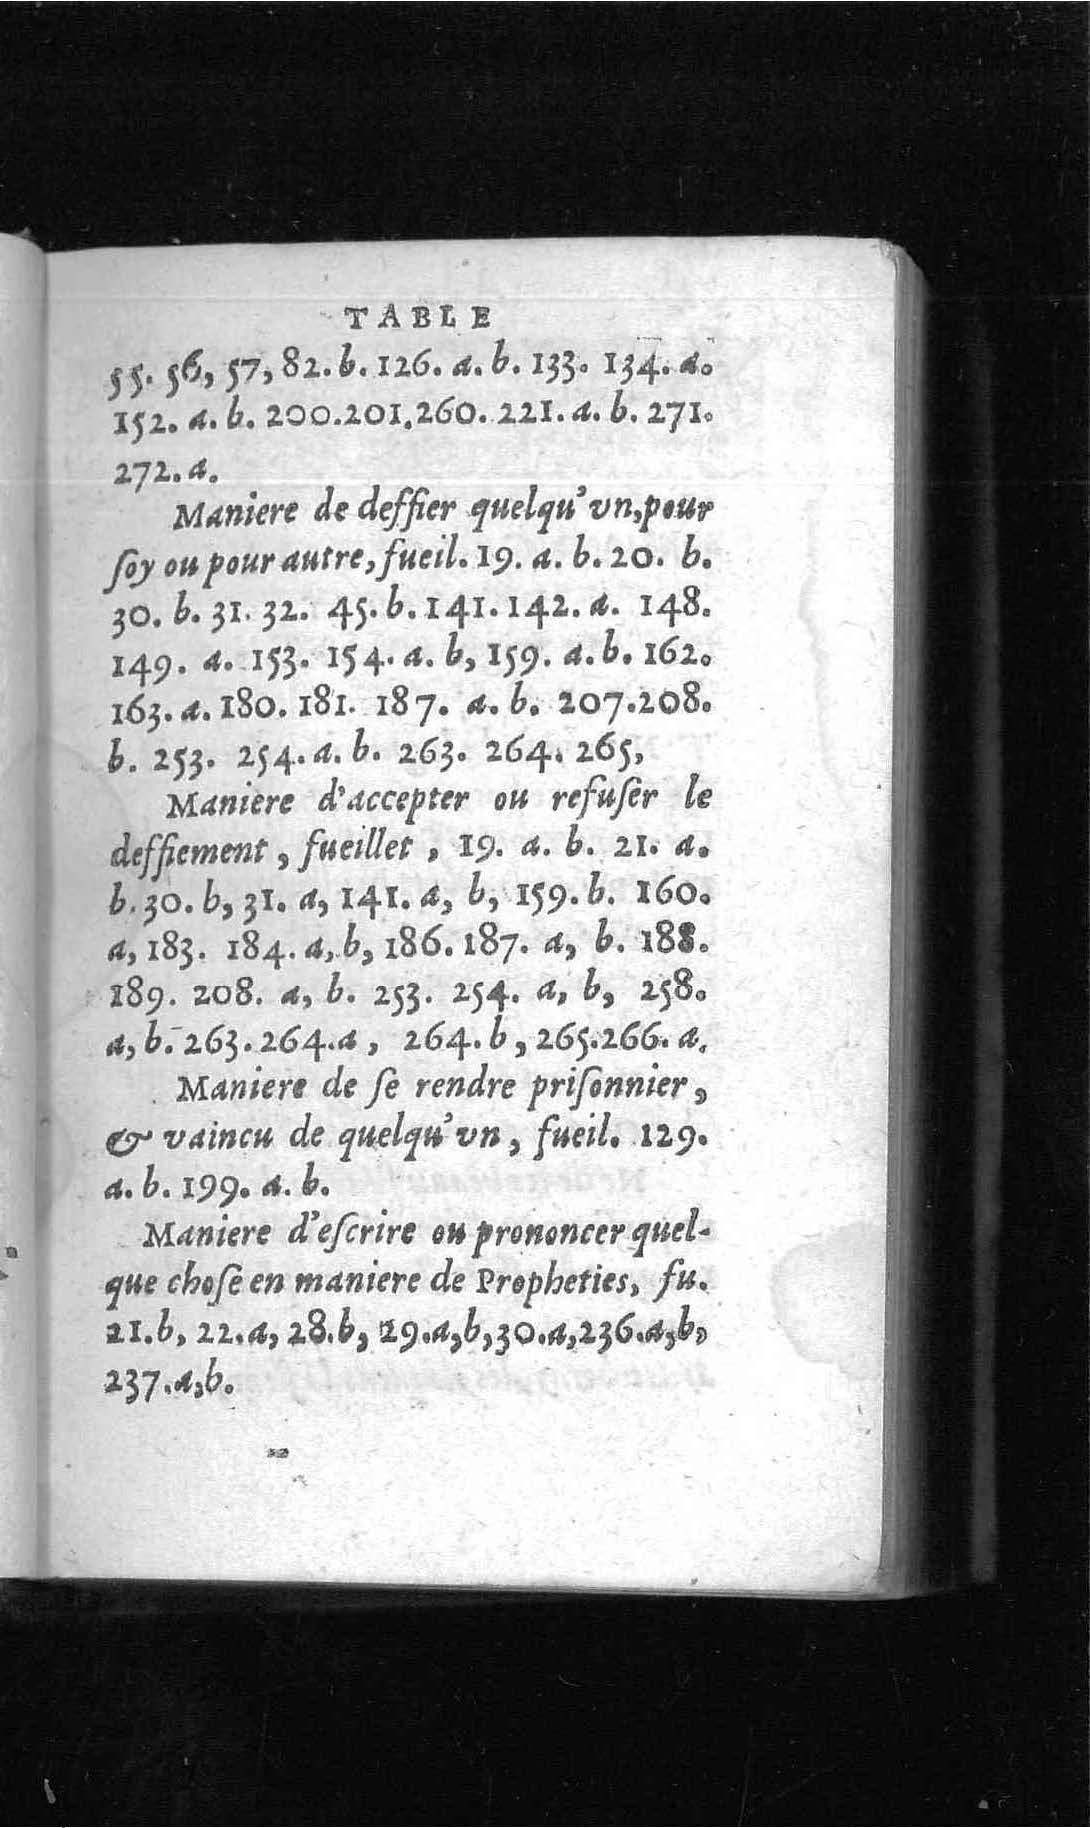 TABLE
55. 56, 57, 82. b. 126. a. b. 133. 134. a.
152. a. b. 200.201.260. 221. a. b. 271.
272. a.
Maniere de deffier quelqu'vn,pour
ſoy ou pour autre, fueil. 19. a. b. 20. b.
30. b. 31. 32. 45. b. 141. 142. a. 148.
149. a. 153. 154. a. b, 159. a. b. 162.
163. a. 180. 181. 187. a. b. 207.208.
b. 253. 254. a. b. 263. 264. 265,
Maniere d'accepter ou refuſer le
deffiement , fueillet , 19. a. b. 21. a.
b. 30. b, 31. a, 141. a, b, 159. b. 160.
a, 183. 184. a, b, 186. 187. a, b. 188.
189. 208. a, b. 253. 254. a, b, 258.
a, b. 263. 264.a , 264. b , 265.266. a.
Maniere de ſe rendre priſonnier ,
& vaincu de quelqu'vn , fueil. 129.
a. b. 199. a. b.
Maniere d'eſcrire ou prononcer quel-
que choſe en maniere de Propheties, fu.
21.b, 22. a, 28.b, 29.a,b,30.a,236.a,b,
237.a,b.